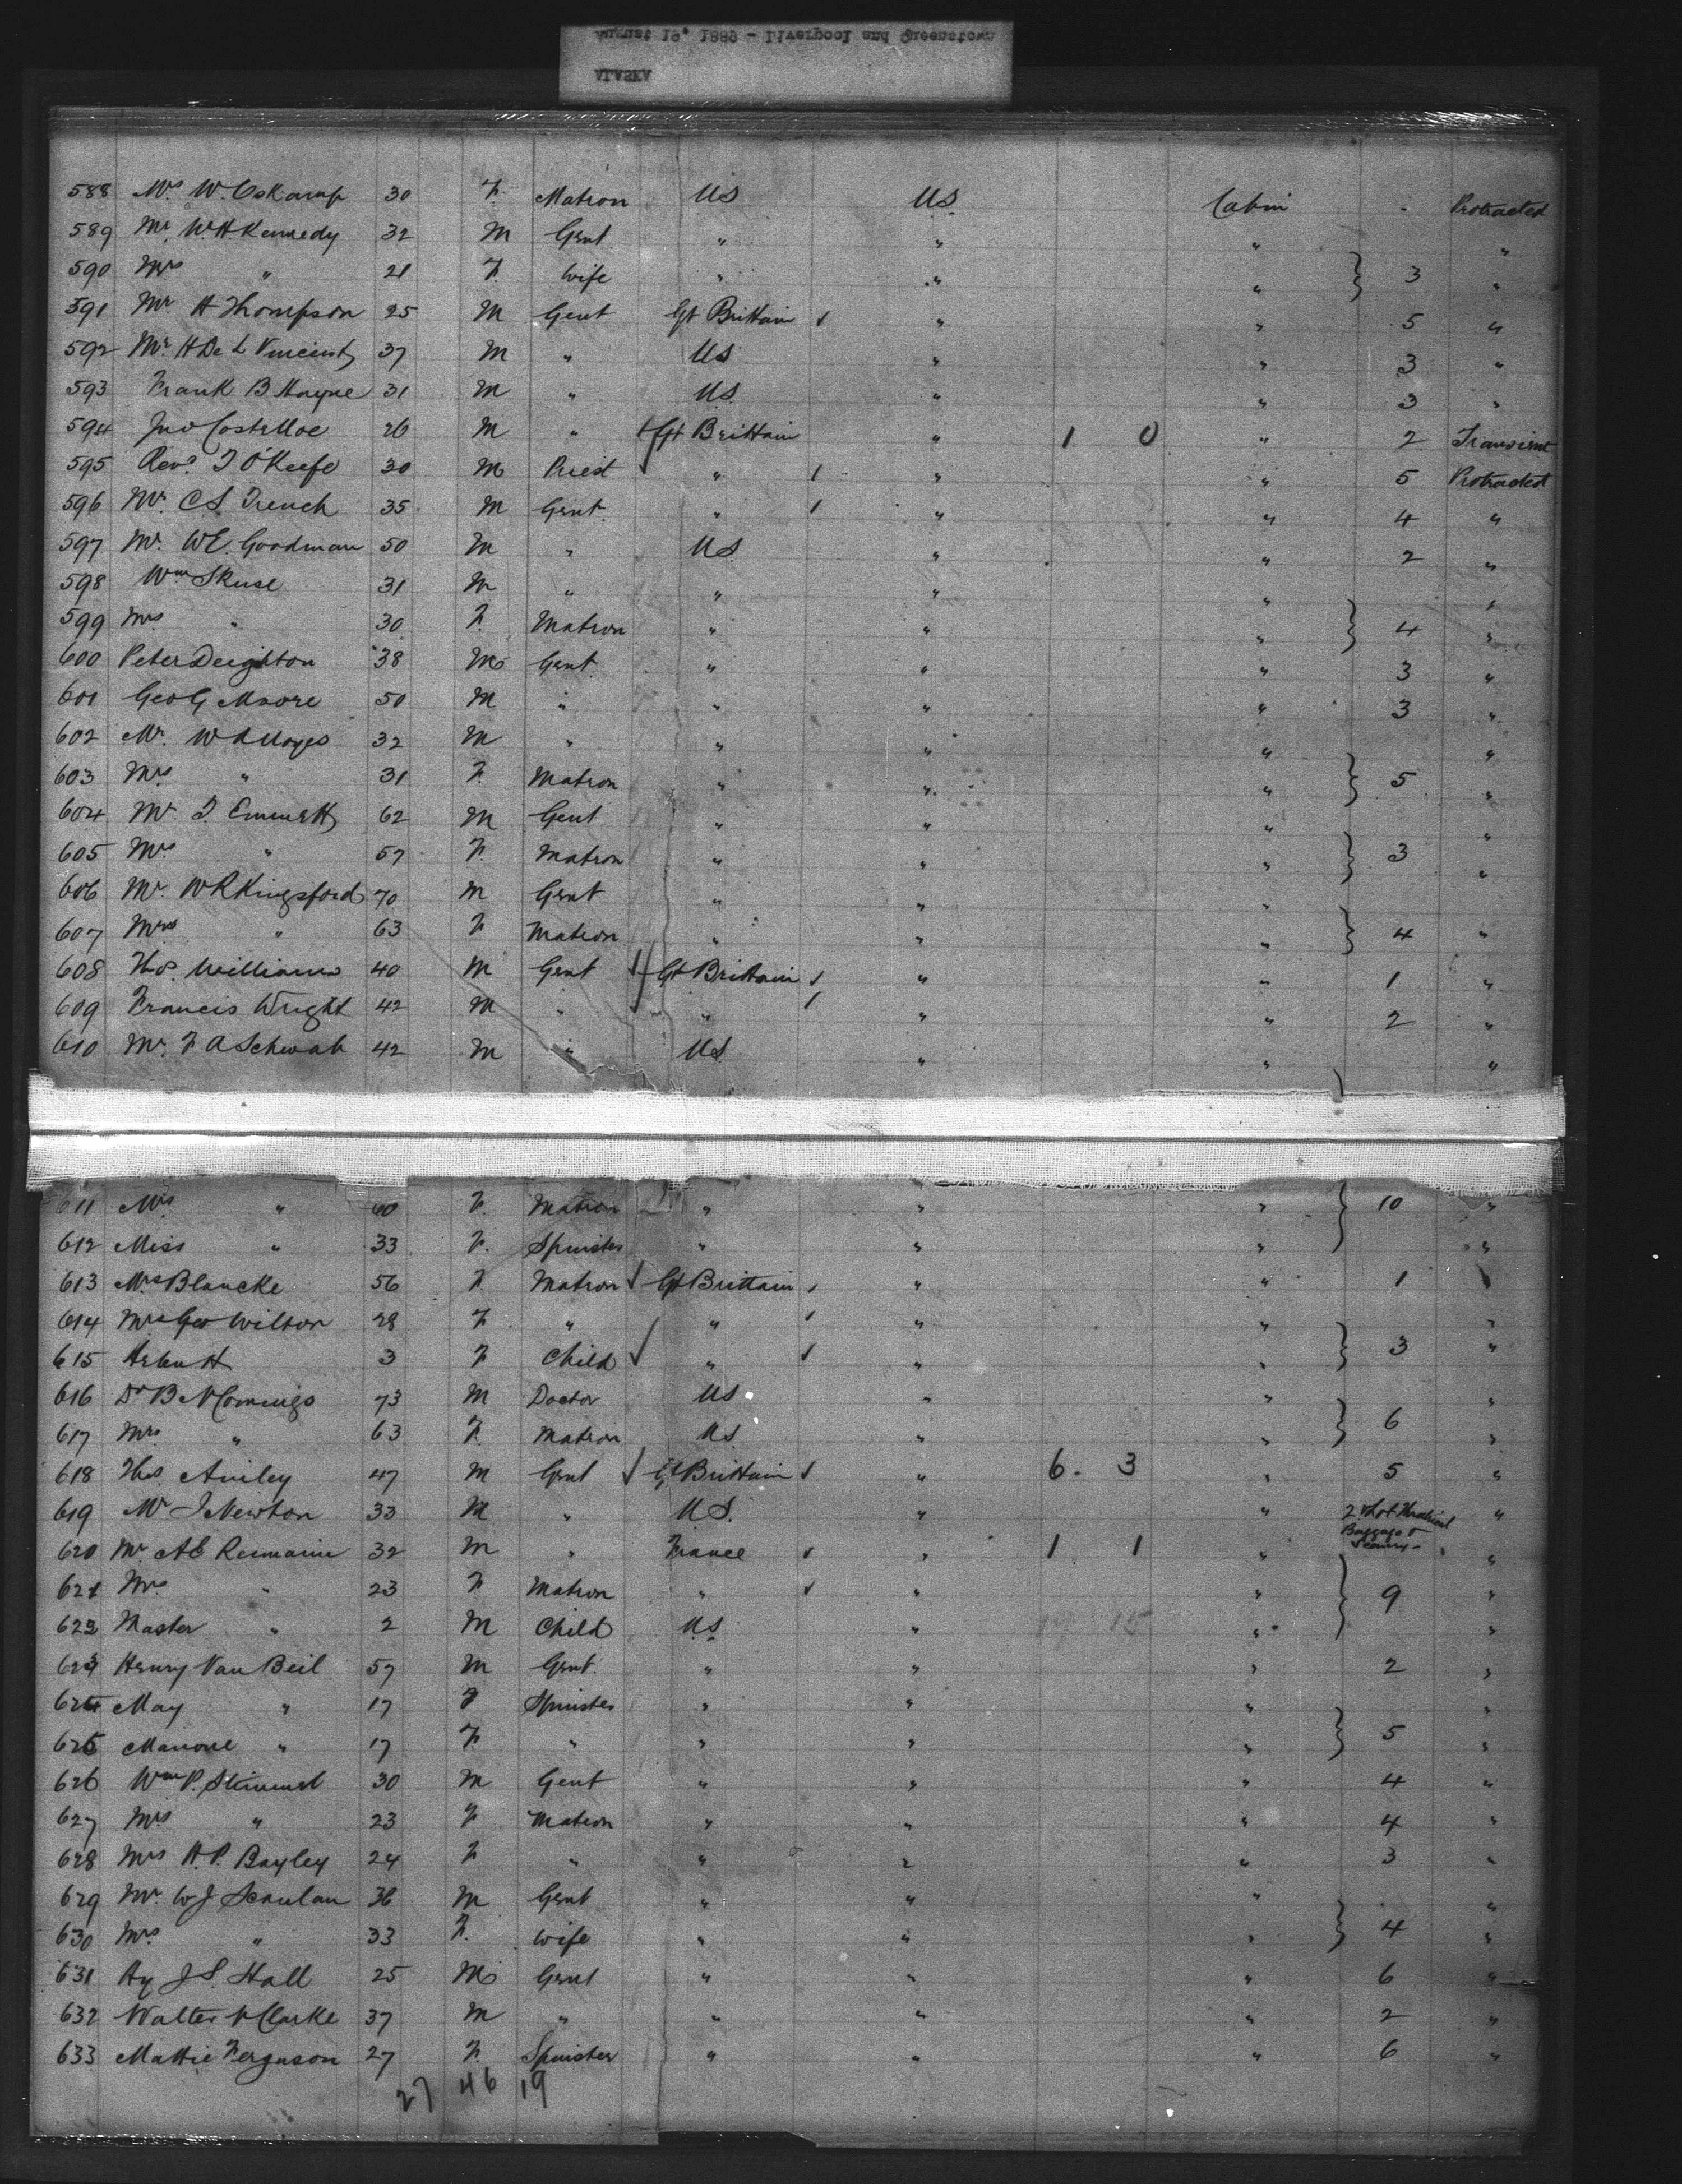 ALASKA
August 19, 1889 - Liverpool and Queenstown
588 Mrs W. Oskamp 30 F. Matron US US Cabin Protracted
589 Mr W.H. Kennedy 32 M Gent " " " "
590 Mrs " 21 F. Wife " " " } 3 "
591 Mr A Thompson 25 M Gent Gt Brittain " " 5 "
592 Mr H De L Vincent 37 M " US " " 3 "
593 Frank B Hayne 31 M " US " " 3 "
594 Jno Costelloe 26 M " Gt Brittain " 1 0 " 2 Transient
595 Revd. T O'Keefe 30 M Priest " " " 5 Protracted
596 Mr. C.S. Trench 35 M Gent. " " " 4 "
597 Mr. W.E. Goodman 50 M " US " " 2 "
598 Wm Skuse 31 M " " " " "
599 Mrs " 30 F. Matron " " " } 4 "
600 Peter Deighton 38 M Gent. " " " 3 "
601 Geo G Moore 50 M " " " " 3 "
602 Mr. W A 32 M " " " " "
603 Mrs " 31 F. Matron " " " } 5 "
604 Mr. T. Emmett 62 M Gent " " " "
605 Mrs " 57 F. Matron " " " } 3 "
606 Mr. W R Kingsford 70 M Gent " " "
607 Mrs " 63 F Matron " " " } 4 "
608 Thos. Williams 40 M Gent Gt Brittain " " 1 "
609 Francis Wright 42 M " " " " 2 "
610 Mr. F A Schwab 42 M " US " " "
611 Mrs " 40 F. Matron " " " } 10 "
612 Miss " 33 F. Spinster " " " "
613 Mrs Blancke 56 F Matron Gt Brittain " " 1
614 Mrs Geo Wilton 28 F " " " " "
615 3 F Child " " " } 3 "
616 Dr B N Comings 73 M Doctor US " " "
617 Mrs " 63 F. Matron US " " } 6 "
618 Thos Ainley 47 M Gent Gt Brittain " 6. 3 " 5 "
619 Mr J Newton 33 M " US. " " 2 & Lot Theatrical Baggage & Scenery "
620 Mr. A E 32 M " France " 1 1 " "
621 Mrs " 23 F Matron " " " } 9 "
622 Master " 2 M Child US " 17 15 " "
623 Henry Van Beil 57 M Gent. " " " 2 "
624 May " 17 F Spinster " " " "
625 " 17 F. " " " " } 5 "
626 Wm P. 30 M Gent " " " 4 "
627 Mrs " 23 F Matron " " " 4 "
628 Mrs H.P. Bayley 24 F " " " " 3 "
629 Mr. W J Scanlan 36 M Gent " " " "
630 Mrs " 33 F. Wife " " " } 4 "
631 J S. Hall 25 M Gent " " " 6 "
632 Walter Clarke 37 M " " " " 2 "
633 Mattie Ferguson 27 F. Spinster " " " 6 "
27 46 19